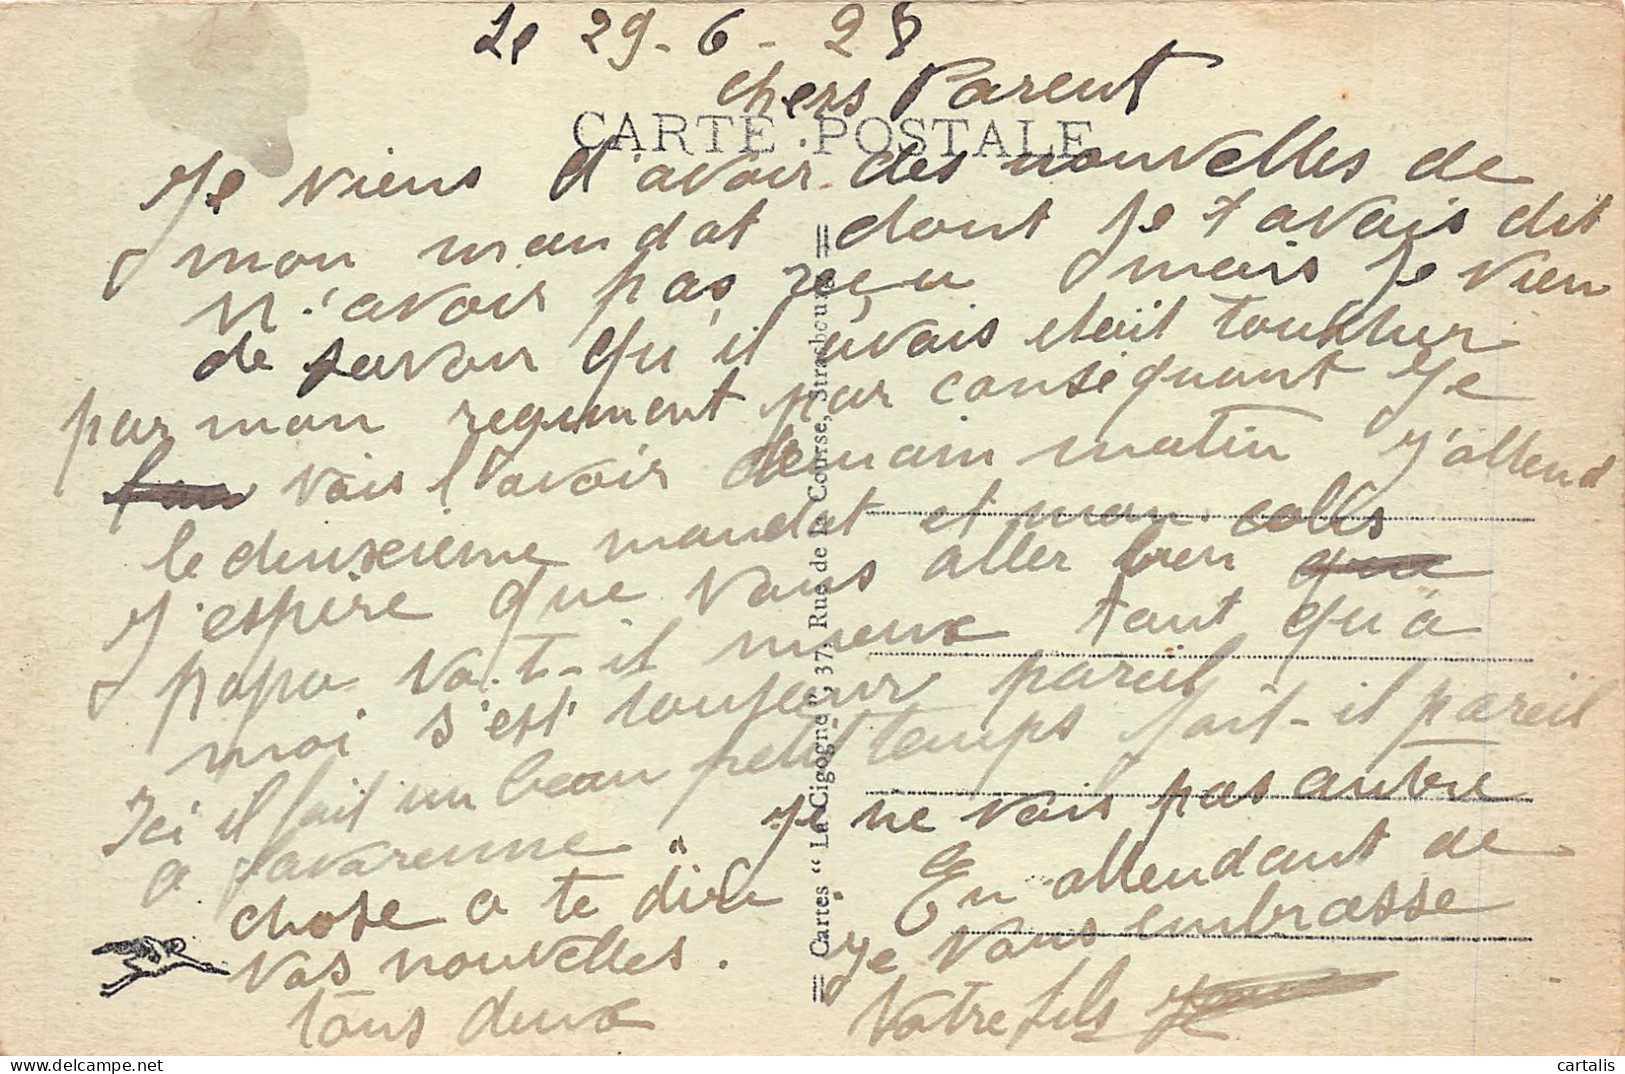 Le 29-6-28
chers Parent
CARTE POSTALE
Je viens d'avoir des nouvelles de
mon mandat dont je t'avais dit
n'avoir pas reçu mais je vien
de savoir qu'il avais etait toucher
par mon regiment par conséquant je
vais l'avoir demain matin J'attend
le deuxieme mandat et mon colis
J'espère que vous aller bien
papa va-t-il mieux tant qu'a
moi s'est toujour pareil
Ici il fait un beau petit temps fait-il pareil
a Lavarenne. Je ne vais pas autre
chose a te dire. En attendant de
vos nouvelles. Je vous embrasse
tous deux Votre fils
Cartes "La Cigogne", 37, Rue de la Course, Strasbourg
cartalis